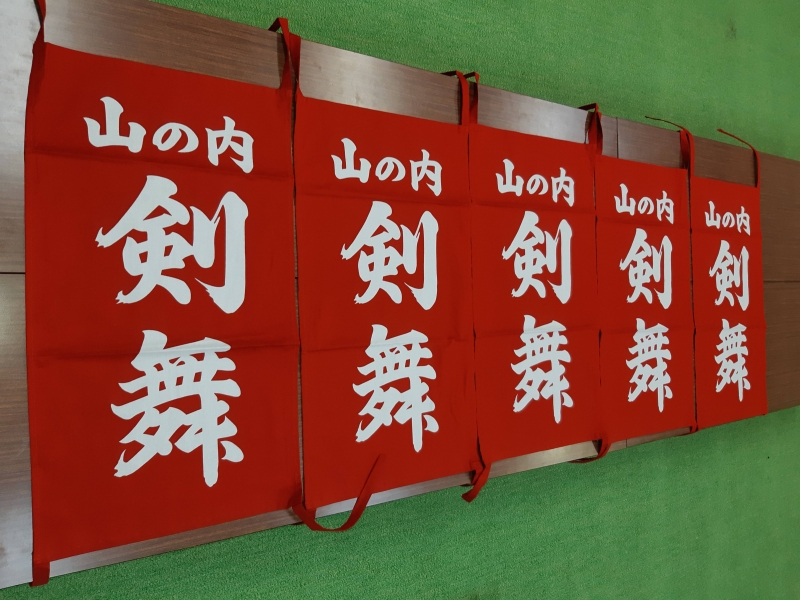 山の内
剣
舞
山の内
剣
舞
山の内
剣
舞
山の内
剣
舞
山の内
剣
舞